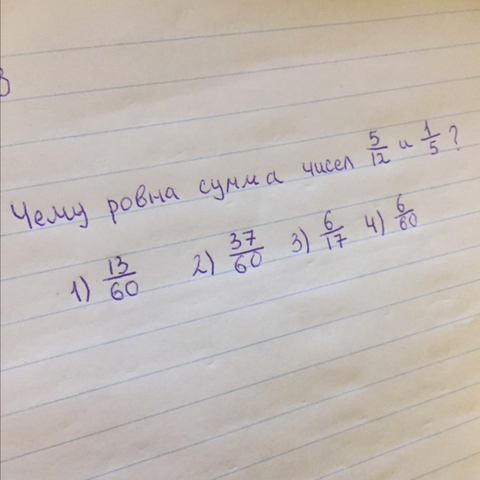 в
Чему ровна сумма чисел 5/12 и 1/5?
1) 13/60 2) 37/60 3) 6/17 4) 6/60